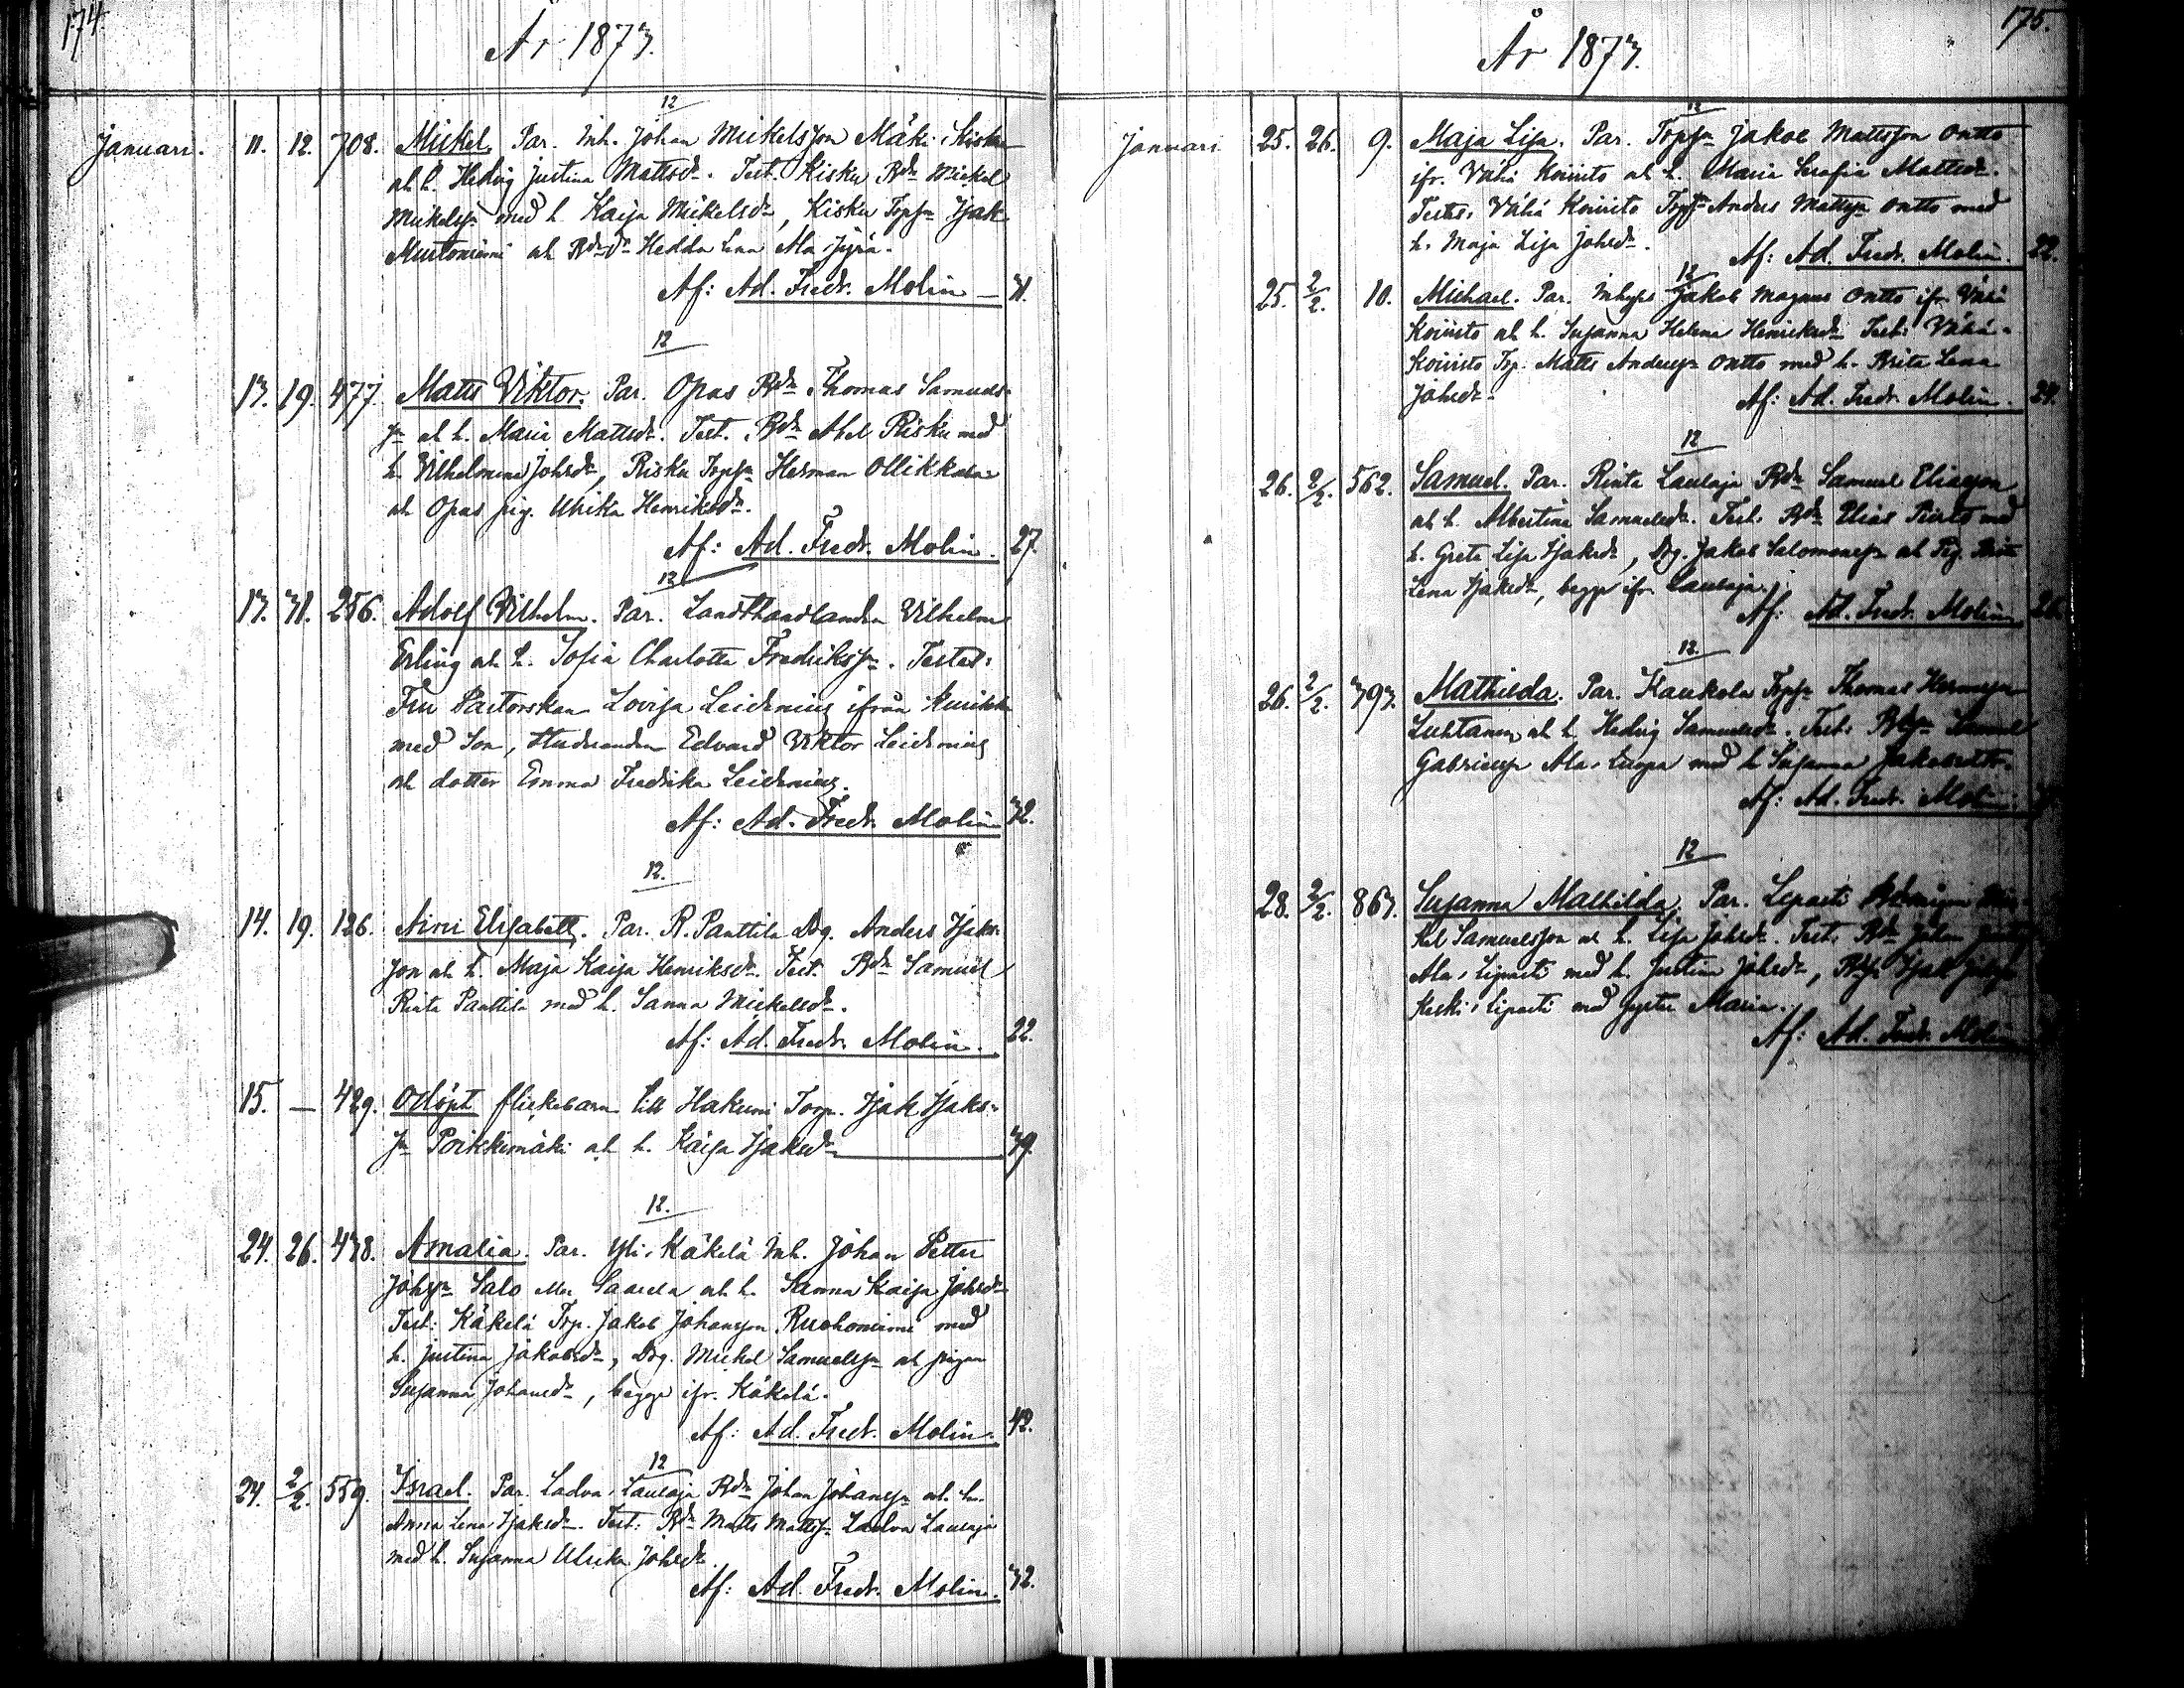 174.
År 1873.
12
Januari. 11. 12. 708. Mickel. Par. Inh. Johan Mickelsson Mäki i Kisku
och h. Hedvig Justina Mattsdr. Test. Kisku Bdn Mickel
Mickelssn med h. Kaisa Mickelsdr, Kisku Torpn Isak
Mustoniemi och Bdndr Hedda Lena Ala Jyrä.
Af: Ad. Fredr. Molin — 31.
12
13. 19. 477. Matts Viktor. Par. Opas Bdn Thomas Samuels-
sn och h. Maria Mattsdr. Test. Bdn Abel Risku med
h. Vilhelmina Johsdr, Risku Torpn Herman Ollikkala
och Opas pig. Ulrika Henriksdr.
Af: Ad. Fredr. Molin. 27.
12
13. 31. 256. Adolf Vilhelm. Par. Landthandlanden Vilhelm
Erling och h. Sofia Charlotta Fredrikssn. Testes:
Fru Pastorskan Lovisa Leidenius ifrån Kurikka
med Son, Studeranden Edvard Viktor Leidenius
och dotter Emma Fredrika Leidenius.
Af: Ad. Fredr. Molin 32.
12.
14. 19. 126. Aini Elisabeth. Par. R. Panttila Drg. Anders Isaks-
son och h. Maja Kaisa Henriksdr. Test. Bdn Samuel
Rinta Panttila med h. Sanna Mickelsdr.
Af: Ad. Fredr. Molin. 22.
15. — 429. Odöpt flickebarn till Hakuni Torp. Isak Isaks-
sn Poikkimäki och h. Kaisa Isaksdr 39.
12.
24. 26. 438. Amalia. Par. Yli-Käkelä Inh. Johan Petter
Johssn Salo eller Saarela och h. Sanna Kaisa Johsdr
Test: Käkelä Trp. Jakob Johansson Ruohoniemi med
h. Justina Jakobsdr, Drg. Mickel Samuelssn och pigan
Susanna Johansdr, begge ifr. Käkelä.
Af: Ad. Fredr. Molin. 42.
12
24. 2/2. 559. Israel. Par. Ladva-Laulaja Bdn Johan Johanssn och h.
Anna Lena Isaksdr. Test: Bdn Matts Mattssn Ladva Laulaja
med h. Susanna Ulrika Johsdr.
Af: Ad. Fredr. Molin. 32.
175.
År 1873.
12
Januari 25. 26. 9. Maja Lisa. Par. Torpn Jakob Mattsson Ontto
ifr. Vähä Koivisto och h. Maria Serafia Mattsdr.
Testes: Vähä Koivisto Torpn Anders Mattssn Ontto med
h. Maja Lisa Johsdr.
Af: Ad. Fredr. Molin. 22.
12
25. 2/2. 10. Michael. Par. Inhyses Jakob Magnus Ontto ifr. Vähä
Koivisto och h. Susanna Helena Henricksdr. Test: Vähä-
Koivisto Trp. Matts Anderssn Ontto med h. Brita Lena
Johsdr.
Af: Ad. Fredr. Molin. 24.
12
26. 2/2. 562. Samuel. Par. Rinta Laulaja Bdn Samuel Eliasson
och h. Albertina Samuelsdr. Test: Bdn Elias Piirto med
h. Greta Lisa Isaksdr, Drg. Jakob Salomonssn och Pig. Brita
Lena Isaksdr, begge ifr. Laulaja.
Af: Ad. Fredr. Molin 26.
12.
26. 2/2. 393. Mathilda. Par. Kaukola Torpn Thomas Hermanssn
Luhtanen och h. Hedvig Samuelsdr. Test: Samuel
Gabrielssn Ala-Luopa med h Susanna Jakobsdtr.
Af: Ad. Fredr. Molin.
12
28. 2/2. 863. Susanna Mathilda. Par. Leparti Mic-
kel Samuelsson och h. Lisa Johsdr. Test: Bdn Johan
Ala-Liparti med h. Justina Johsdr, Isak
Keski-Liparti med syster Maria.
Af: Ad. Fredr. Molin